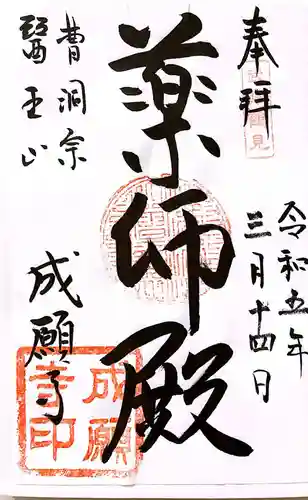 奉拝
令和五年
三月十四日
薬師殿
曹洞宗
醫王山
成願寺
成願
寺印